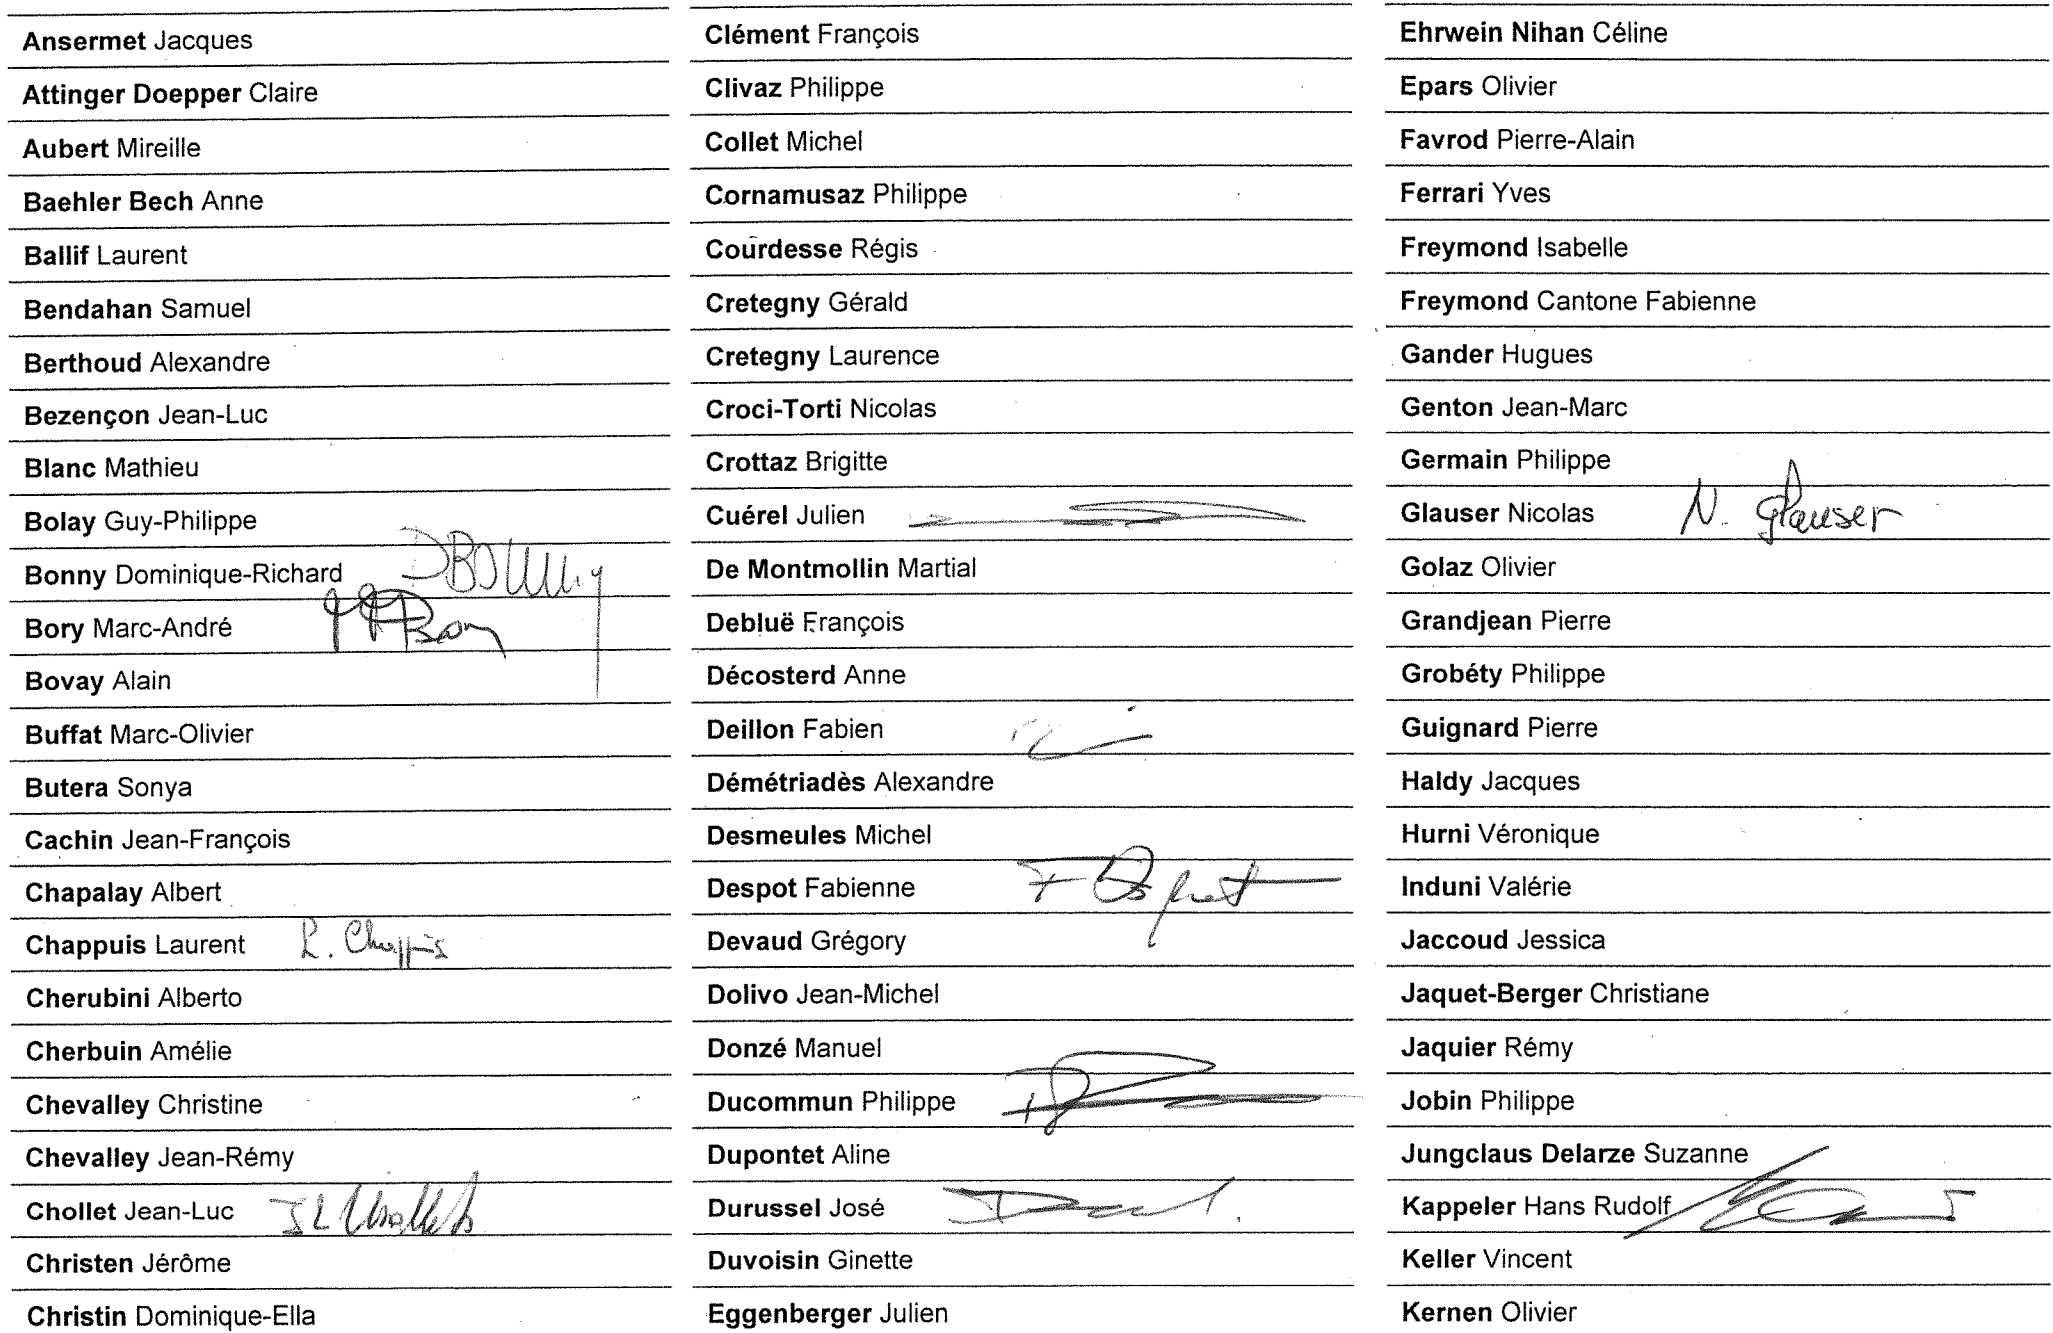 Ansermet Jacques
Attinger Doepper Claire
Aubert Mireille
Baehler Bech Anne
Ballif Laurent
Bendahan Samuel
Berthoud Alexandre
Bezençon Jean-Luc
Blanc Mathieu
Bolay Guy-Philippe
Bonny Dominique-Richard DBonny
Bory Marc-André MABory
Bovay Alain
Buffat Marc-Olivier
Butera Sonya
Cachin Jean-François
Chapalay Albert
Chappuis Laurent L. Chappuis
Cherubini Alberto
Cherbuin Amélie
Chevalley Christine
Chevalley Jean-Rémy
Chollet Jean-Luc JL Chollet
Christen Jérôme
Christin Dominique-Ella
Clément François
Clivaz Philippe
Collet Michel
Cornamusaz Philippe
Courdesse Régis
Cretegny Gérald
Cretegny Laurence
Croci-Torti Nicolas
Crottaz Brigitte
Cuérel Julien
De Montmollin Martial
Debluë François
Décosterd Anne
Deillon Fabien
Démétriadès Alexandre
Desmeules Michel
Despot Fabienne F Despot
Devaud Grégory
Dolivo Jean-Michel
Donzé Manuel
Ducommun Philippe
Dupontet Aline
Durussel José
Duvoisin Ginette
Eggenberger Julien
Ehrwein Nihan Céline
Epars Olivier
Favrod Pierre-Alain
Ferrari Yves
Freymond Isabelle
Freymond Cantone Fabienne
Gander Hugues
Genton Jean-Marc
Germain Philippe
Glauser Nicolas N. Glauser
Golaz Olivier
Grandjean Pierre
Grobéty Philippe
Guignard Pierre
Haldy Jacques
Hurni Véronique
Induni Valérie
Jaccoud Jessica
Jaquet-Berger Christiane
Jaquier Rémy
Jobin Philippe
Jungclaus Delarze Suzanne
Kappeler Hans Rudolf
Keller Vincent
Kernen Olivier